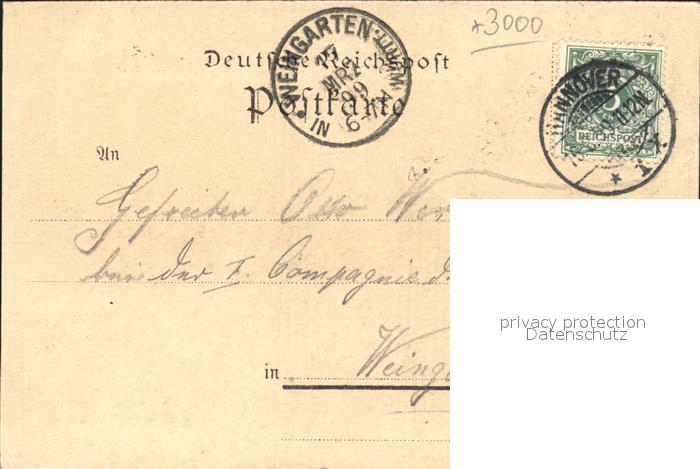 +3000
Deutsche Reichspost
Postkarte
WEINGARTEN
17
MRZ
99
6-7N
IN
HANNOVER
11-12N
REICHSPOST
* 1 *
An
Gefreiter Otto
bei der I. Compagnie d.
in Weing
privacy protection
Datenschutz